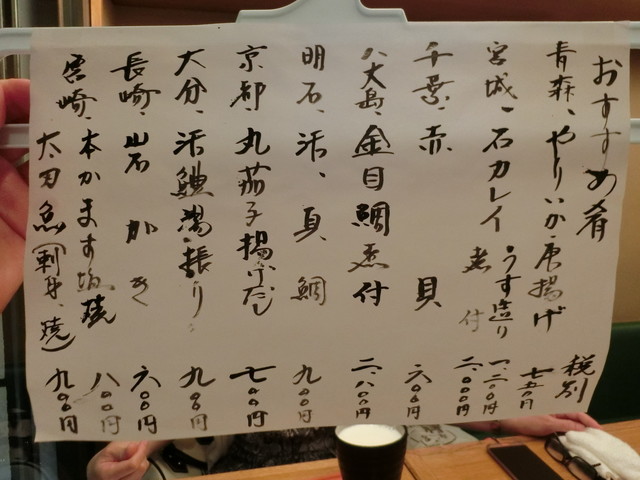 おすすめ肴
税別
青森、やりいか唐揚げ 七五〇円
宮城、石カレイ うす造り 一、二〇〇円
煮付 二、〇〇〇円
千葉、赤貝 六〇〇円
八丈島、金目鯛煮付 二、八〇〇円
明石、活、真鯛 九〇〇円
京都、丸茄子揚げだし 七〇〇円
大分、活鱧湯振り 九〇〇円
長崎、岩がき 六〇〇円
宮崎、本かます塩焼 八〇〇円
太刀魚(刺身、焼) 九〇〇円